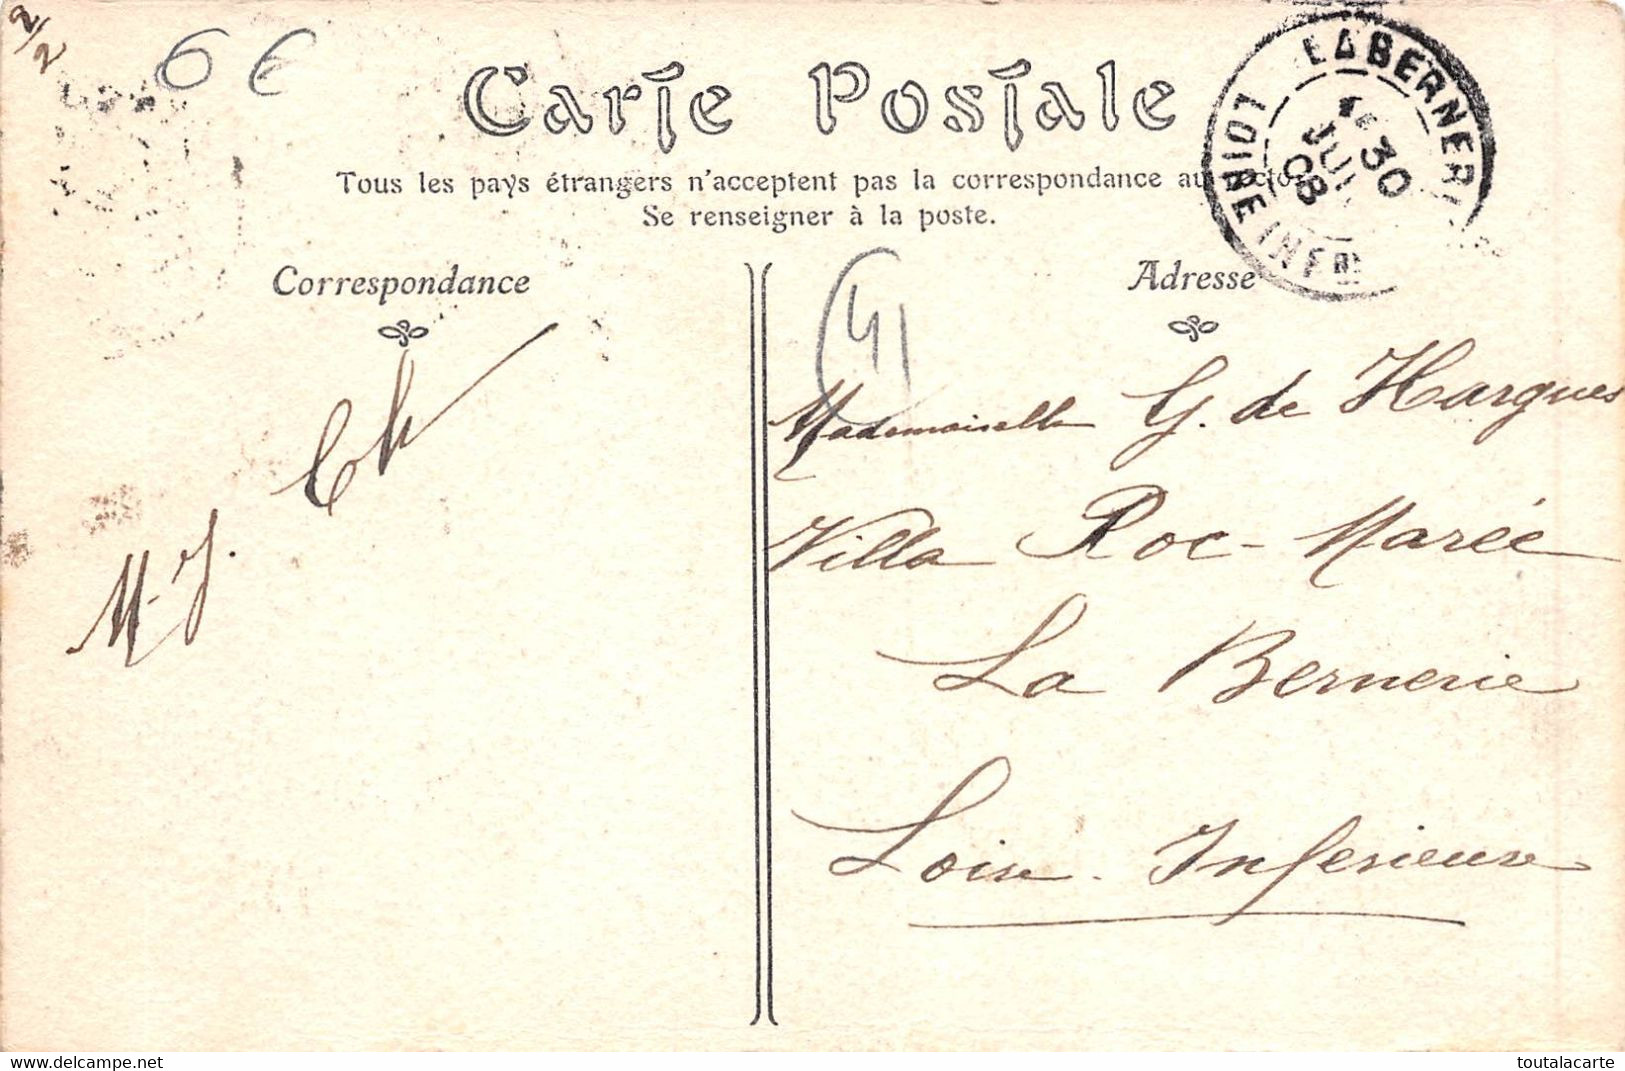 2/2
6 €
Carte Postale
Tous les pays étrangers n'acceptent pas la correspondance au
Se renseigner à la poste.
LA BERNERI
LOIRE INFRE
30
08
Correspondance
Adresse
41
M-J. Ch
Mademoiselle G. de Hargues
Villa Roc-Marée
La Bernerie
Loire-Inférieure
delcampe.net
toutalacarte